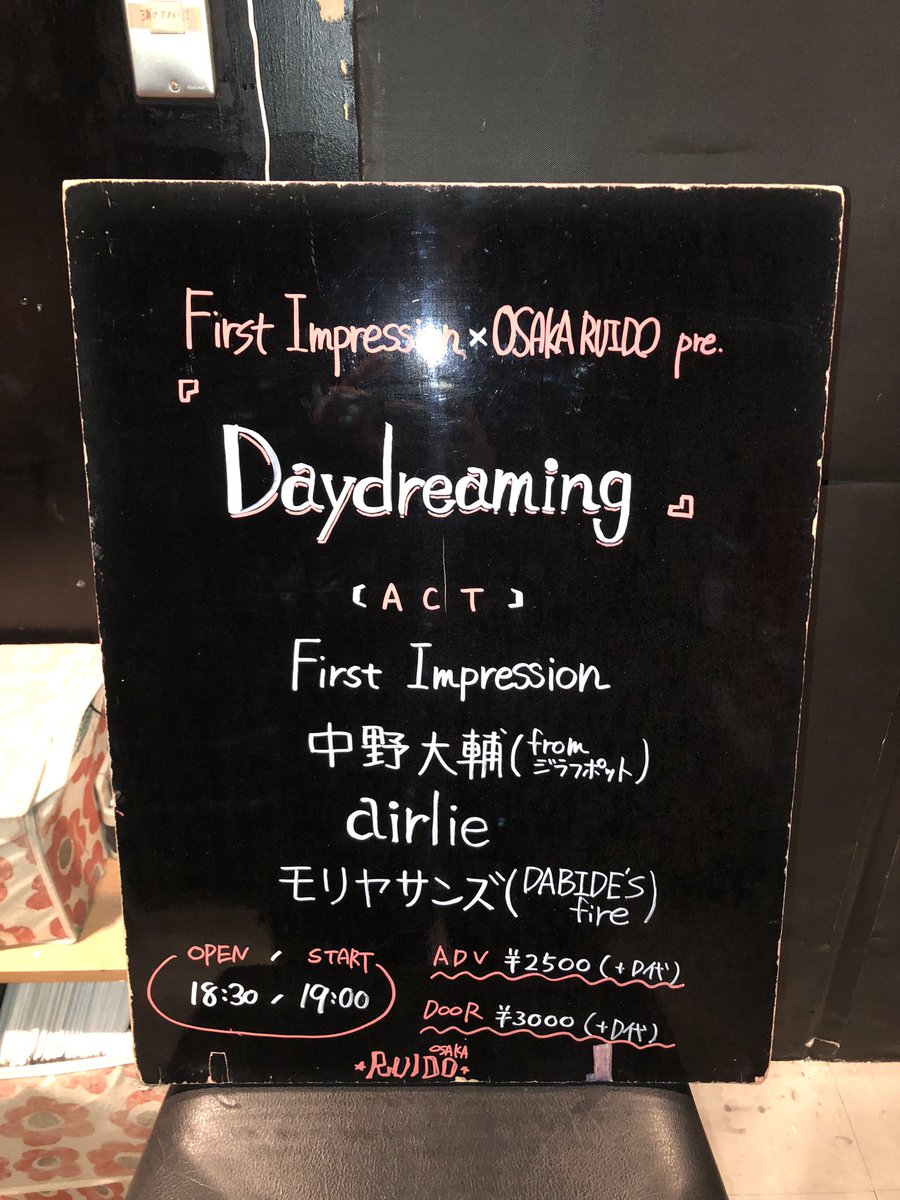 First Impression × OSAKA RUIDO pre.
『
Daydreaming
』
【ACT】
First Impression
中野大輔(from ジラフポット)
airlie
モリヤサンズ(DABIDE'S fire)
OPEN / START
18:30 / 19:00
ADV ¥2500(+D代)
DOOR ¥3000(+D代)
OSAKA
RUIDO